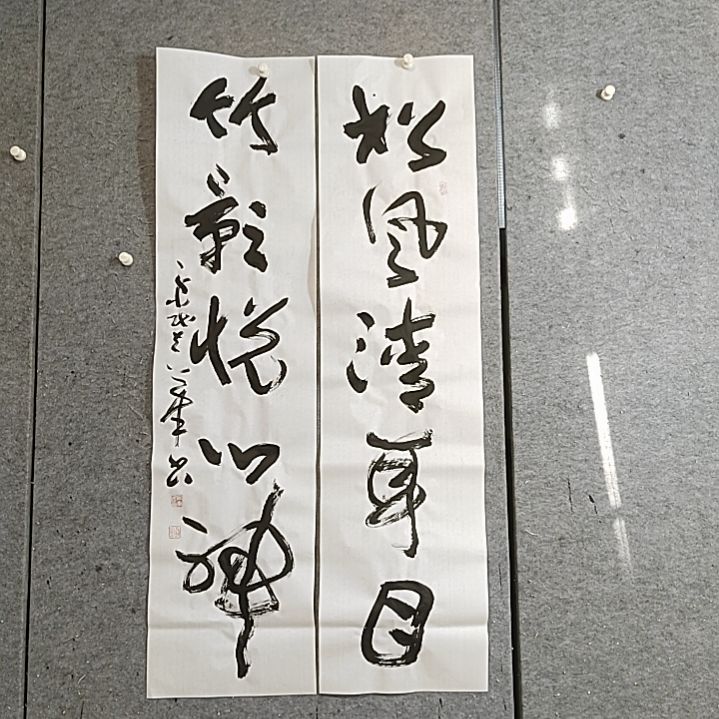 松风清耳目
竹影悦心神